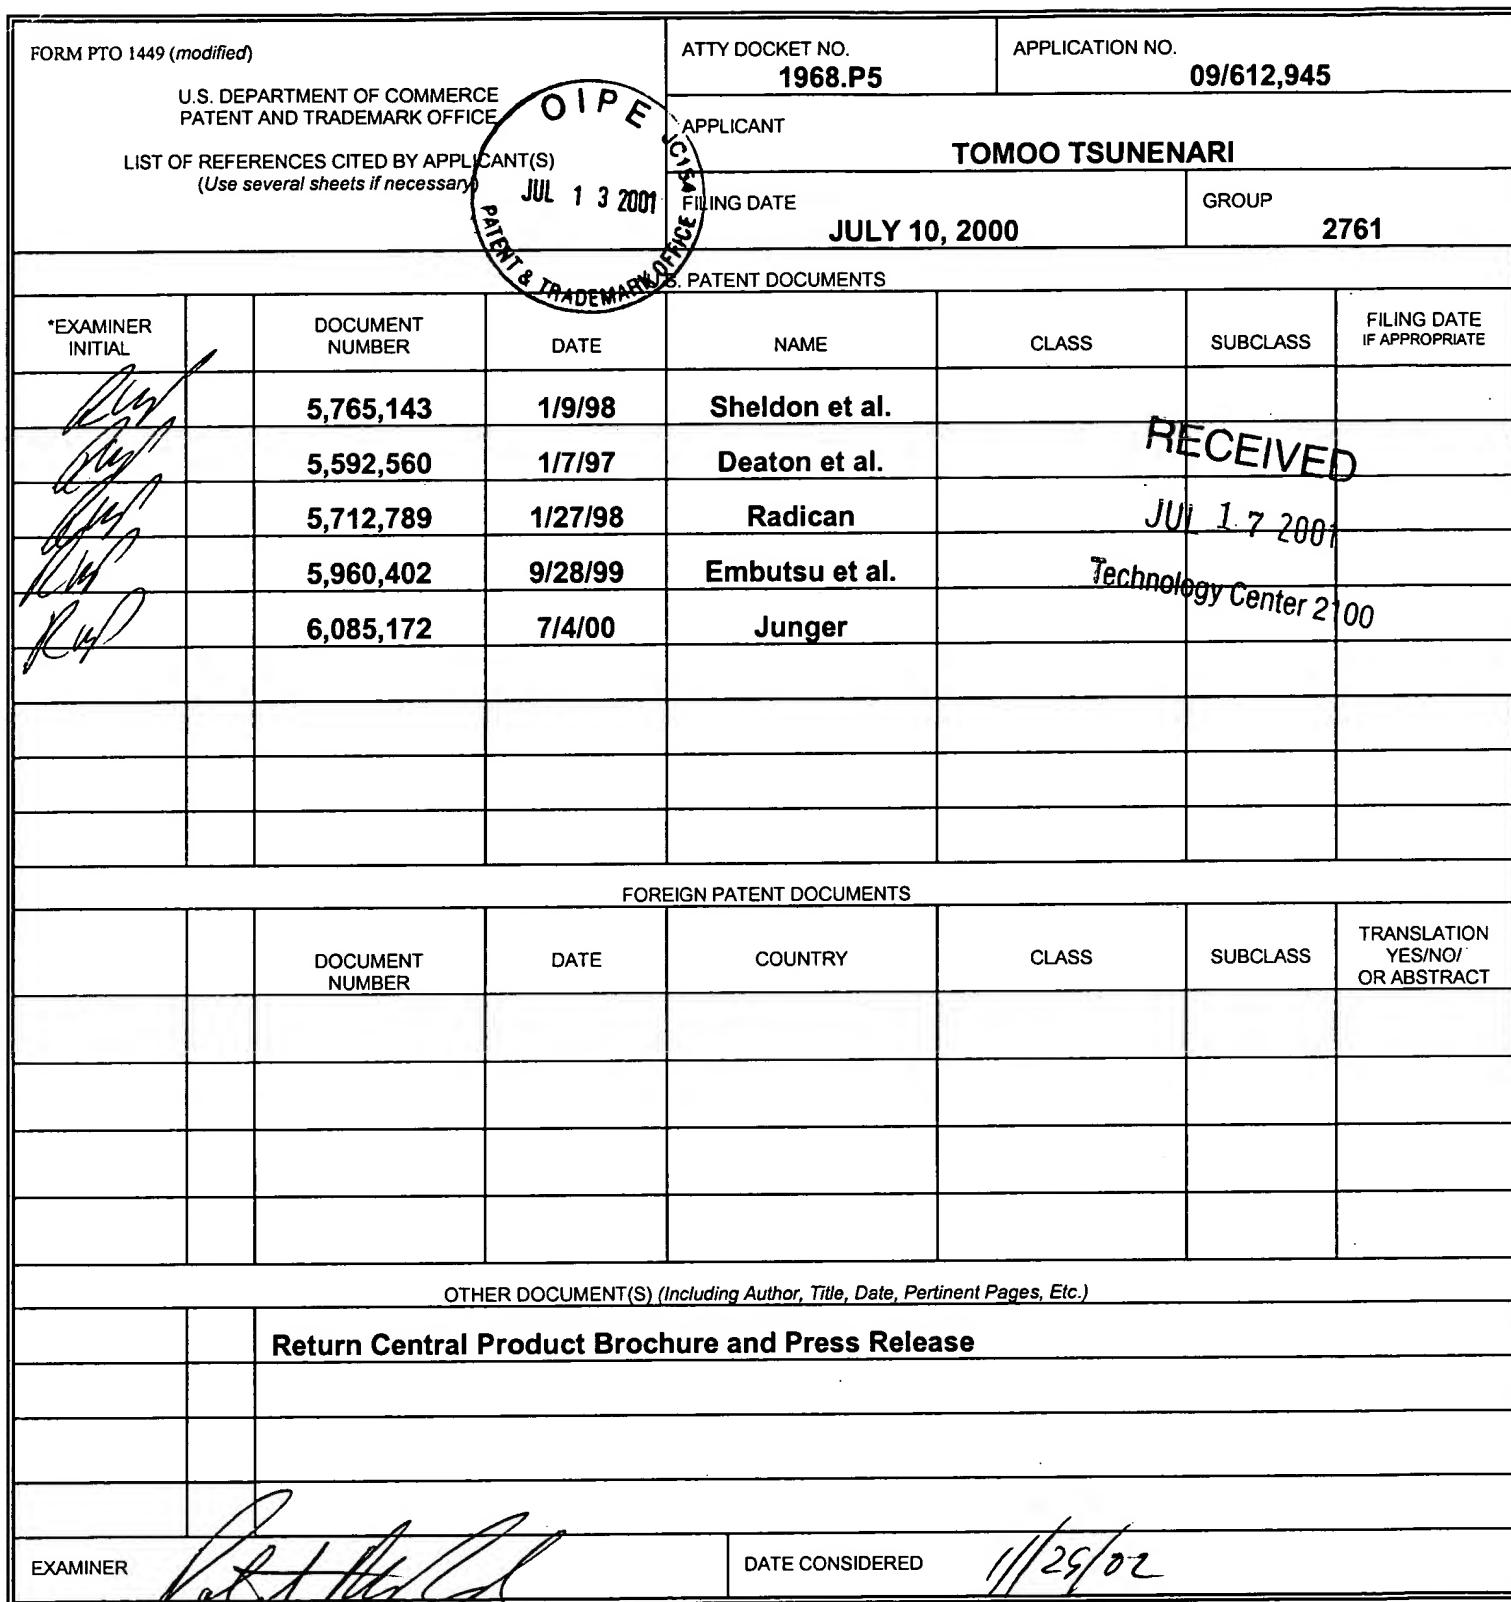 FORM PTO 1449 (modified)
U.S. DEPARTMENT OF COMMERCE
PATENT AND TRADEMARK OFFICE
LIST OF REFERENCES CITED BY APPLICANT(S)
(Use several sheets if necessary)
OIPE JC154
JUL 13 2001
PATENT & TRADEMARK OFFICE
ATTY DOCKET NO.
1968.P5
APPLICATION NO.
09/612,945
APPLICANT
TOMOO TSUNENARI
FILING DATE
JULY 10, 2000
GROUP
2761
S. PATENT DOCUMENTS
*EXAMINER INITIAL
DOCUMENT NUMBER
DATE
NAME
CLASS
SUBCLASS
FILING DATE IF APPROPRIATE
5,765,143 1/9/98 Sheldon et al.
5,592,560 1/7/97 Deaton et al.
5,712,789 1/27/98 Radican
5,960,402 9/28/99 Embutsu et al.
6,085,172 7/4/00 Junger
RECEIVED
JUL 17 2001
Technology Center 2100
FOREIGN PATENT DOCUMENTS
DOCUMENT NUMBER
DATE
COUNTRY
CLASS
SUBCLASS
TRANSLATION YES/NO/ OR ABSTRACT
OTHER DOCUMENT(S) (Including Author, Title, Date, Pertinent Pages, Etc.)
Return Central Product Brochure and Press Release
EXAMINER
DATE CONSIDERED 11/25/02